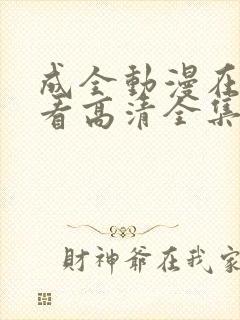 成全動漫在
看高清全集
財神爺在我家